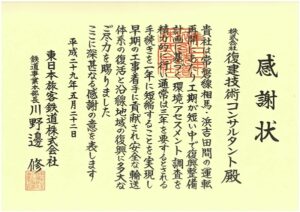 感謝状
株式会社復建技術コンサルタント殿
貴社は常磐線相馬・浜吉田間の運転
再開にあたり工期が短い中で復興整備
計画に基づく環境アセスメント調査を
精力的に行い通常は三年を要するとされる
手続きを一年に短縮することを実現し
早期の工事着手に貢献され安全な輸送
体系の復活と沿線地域の復興に多大な
ご尽力を賜りました
ここに深甚なる感謝の意を表します
平成二十九年五月二十二日
東日本旅客鉄道株式会社
鉄道事業本部長 川野邊 修